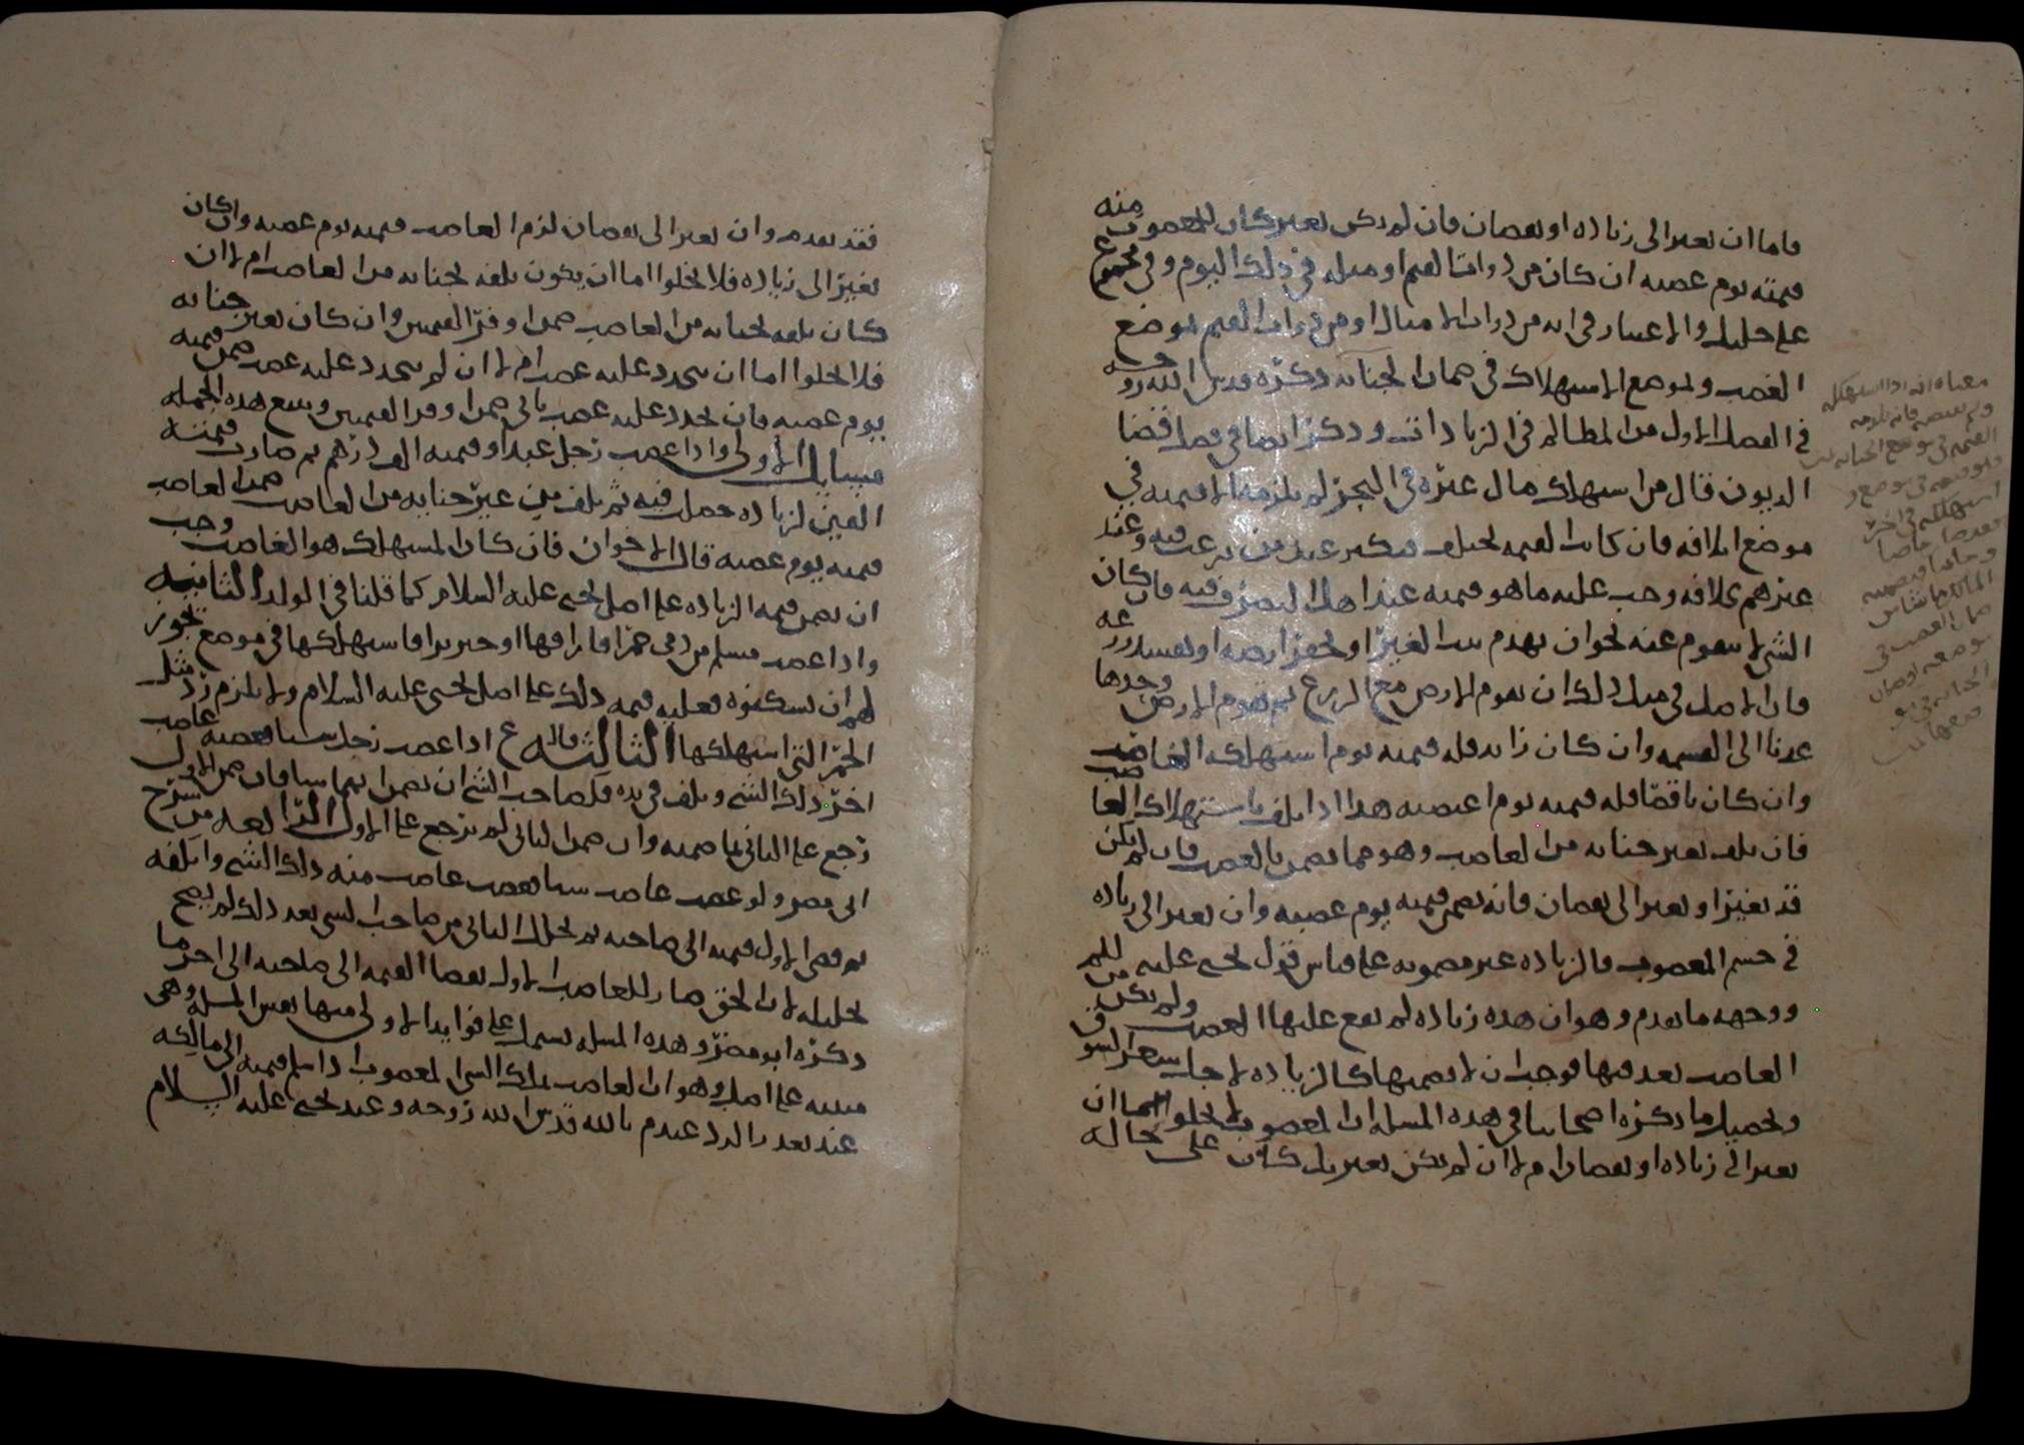 فاما ان تغير الى زياده او نقصان فان لم يكن تغير كان للمغصوب منه
قيمته يوم غصبه ان كان من ذوات القيم او مثله في ذلك اليوم وفي
على والاعتبار في انه من ذوات الامثال او من ذوات القيم بموضع
الغصب ولموضع الاستهلاك في ضمان الجنايه ذكره قدس الله روحه
في الفصل الاول من المظالم في الزيادات وذكر ايضا في فصل قضا
الديون قال من استهلك مال غيره في البحر لم يلزمه الا قيمته في
موضع الافه فان كانت القيمه تختلف عند من يرغب فيه وعند
غيرهم لافه وجب عليه ما هو قيمته عند اهل البصر فيه فان كان
الشي لا يقوم عنه نحو ان يهدم بيت الغير او يحفر ارضه او يفسد زرعه
فان الاصل في مثل ذلك ان تقوم الارض مع الزرع ثم تقوم الارض وحدها
عدنا الى القسمه وان كان زايد فله قيمته يوم استهلكه الغاصب
وان كان ناقصا فله قيمته يوم اغتصبه هذا اذا تلف باستهلاك الغاصب
فان تلف بغير جنايه من الغاصب وهو مما يضمن بالغصب فان لم يكن
قد تغير او تغير الى نقصان فانه يضمن قيمته يوم غصبه وان تغير الى زياده
في جسم المغصوب فالزياده غير مضمونه على قياس قول يحيى عليه السلم
ووجهه ما تقدم وهو ان هذه زياده لم يقع عليها الغصب ولم يكن من
الغاصب تعد فيها فوجب ان لا يضمنها كالزياده لاجل سعر السوق
وتحصيل ما ذكره اصحابنا في هذه المسله ان المغصوب لا يخلوا اما ان
تغير الى زياده او نقصان ام لا ان لم يكن تغير بل كان على حاله
معناه انه اذا استهلكه
القيمه في موضع الجنايه
استهلكه في اخر
فقد تقدم وان تغير الى نقصان لزم الغاصب قيمته يوم غصبه وان كان
تغير الى زياده فلا يخلوا اما ان يكون تلفه لجنايه من الغاصب ام لا ان
كان تلفه لجنايه من الغاصب ضمن اوفر القيمتين وان كان بغير جنايه
فلا يخلوا اما ان يجدد عليه غصب ام لا ان لم يجدد عليه غصب ضمن قيمته
يوم غصبه فان تجدد عليه غصب ثاني ضمن اوفر القيمتين ويتبع هذه الجمله
مسايل الاولى واذا غصب رجل عبدا وقيمته الف درهم ثم صارت قيمته
الفين لزياده حصلت فيه ثم تلف من غير جنايه من الغاصب ضمن الغاصب
قيمته يوم غصبه قال الاخوان فان كان المستهلك هو الغاصب وجب
ان يضمن قيمه الزياده على اصل يحيى عليه السلام كما قلنا في الولد الثانيه
واذا غصب مسلم من ذمي خمرا فاراقها او خنزيرا فاستهلكها في موضع يجوز
لهم ان يسكنوه فعليه قيمه ذلك على اصل يحيى عليه السلام ولا يلزم رد مثل
الخمر التي استهلكها الثالثه قال ع اذا غصب رجل شيا فغصبه غاصب
اخر ذلك الشي وتلف في يده فلصاحب الشي ان يضمن ايهما شا فان ضمن الاول
رجع على الثاني بما ضمنه وان ضمن الثاني لم يرجع على الاول الرابعه من شرح
ابي مضر ولو غصب غاصب شيا فغصب غاصب منه ذلك الشي واتلفه
ثم قضى الاول قيمته الى صاحبه ثم تحلل الثاني من صاحب الشي بعد ذلك لم يصح
تحليله لان الحق صار للغاصب الاول بقضا القيمه الى صاحبه الى اخر ما
ذكره ابو مضر وهذه المسله تشتمل على فوايد الاولى منها نفس المسله وهي
مبنيه على اصل وهو ان الغاصب يملك الشي المغصوب اذا سلم قيمته الى مالكه
عند تعذر الرد عند م بالله قدس الله روحه وعند يحيى عليه السلام